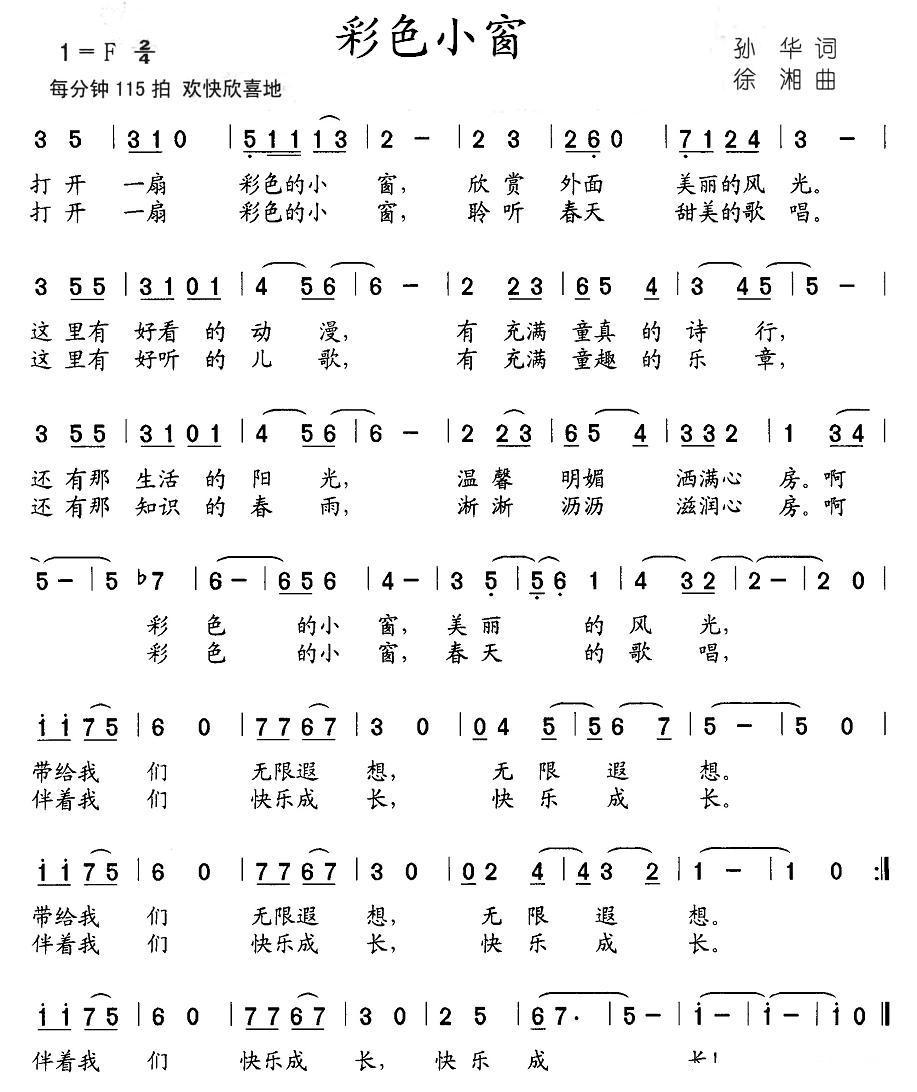 彩色小窗
1=F 2/4
孙 华 词
每分钟 115 拍 欢快欣喜地
徐 湘 曲
3 5 | 3 1 0 | 5 1 1 1 3 | 2 - | 2 3 | 2 6 0 | 7 1 2 4 | 3 - |
打 开 一扇 彩色的小 窗, 欣 赏 外面 美丽的风 光。
打 开 一扇 彩色的小 窗, 聆 听 春天 甜美的歌 唱。
3 5 5 | 3 1 0 1 | 4 5 6 | 6 - | 2 2 3 | 6 5 4 | 3 4 5 | 5 - |
这 里有 好看 的 动 漫, 有 充满 童真 的 诗 行,
这 里有 好听 的 儿 歌, 有 充满 童趣 的 乐 章,
3 5 5 | 3 1 0 1 | 4 5 6 | 6 - | 2 2 3 | 6 5 4 | 3 3 2 | 1 3 4 |
还 有那 生活 的 阳 光, 温 馨 明媚 洒满心 房。啊
还 有那 知识 的 春 雨, 淅 淅 沥沥 滋润心 房。啊
5 - | 5 ♭7 | 6 - | 6 5 6 | 4 - | 3 5 | 5 6 1 | 4 3 2 | 2 - | 2 0 |
彩 色 的小 窗, 美 丽 的 风 光,
彩 色 的小 窗, 春 天 的 歌 唱,
i i 7 5 | 6 0 | 7 7 6 7 | 3 0 | 0 4 5 | 5 6 7 | 5 - | 5 0 |
带给我 们 无限遐 想, 无 限 遐 想。
伴着我 们 快乐成 长, 快 乐 成 长。
i i 7 5 | 6 0 | 7 7 6 7 | 3 0 | 0 2 4 | 4 3 2 | 1 - | 1 0 :‖
带给我 们 无限遐 想, 无 限 遐 想。
伴着我 们 快乐成 长, 快 乐 成 长。
i i 7 5 | 6 0 | 7 7 6 7 | 3 0 | 2 5 | 6 7· | 5 - | i - | i - | i 0 ‖
伴着我 们 快乐成 长, 快 乐 成